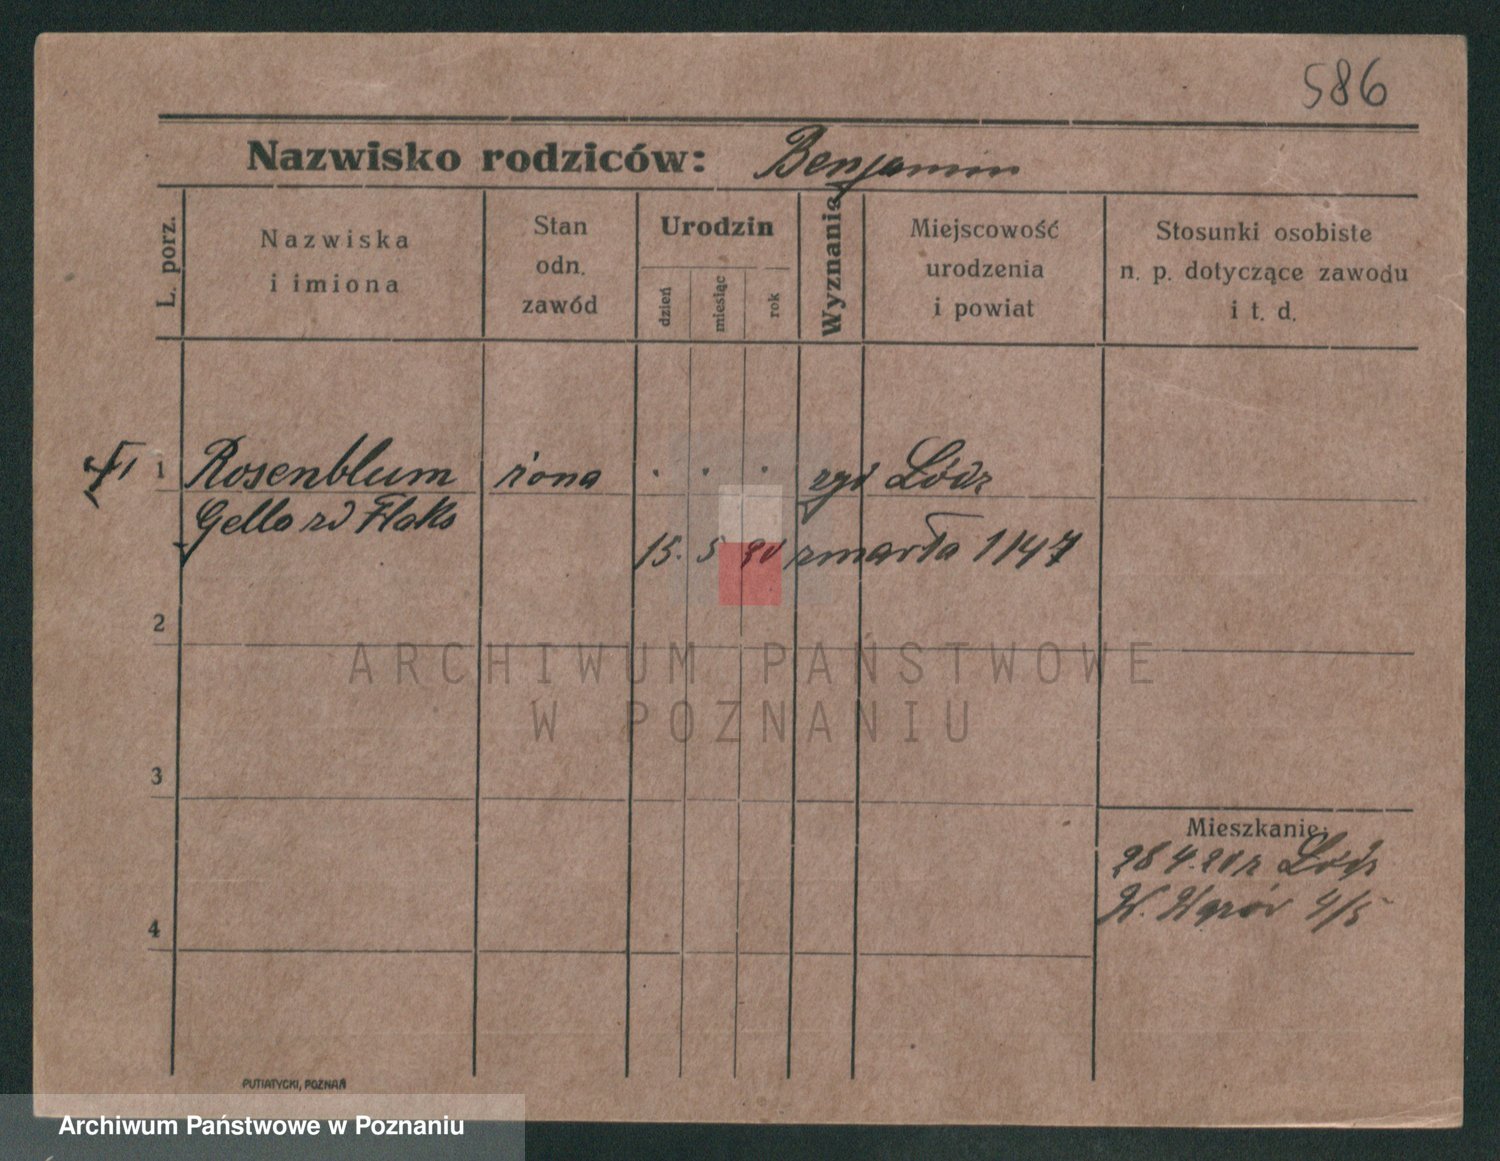 586
Nazwisko rodziców: Benjamin
L. porz.
Nazwiska
i imiona
Stan
odn.
zawód
Urodzin
dzień
miesiąc
rok
Wyznanie
Miejscowość
urodzenia
i powiat
Stosunki osobiste
n. p. dotyczące zawodu
i t. d.
1 Rosenblum żona . . . Łódz
Gella zd Flaks
15. 5 zmarła 1147
2
ARCHIWUM PAŃSTWOWE
W POZNANIU
3
Mieszkanie:
28 4. Łódz
4/5
4
PUTIATYCKI, POZNAŃ
Archiwum Państwowe w Poznaniu